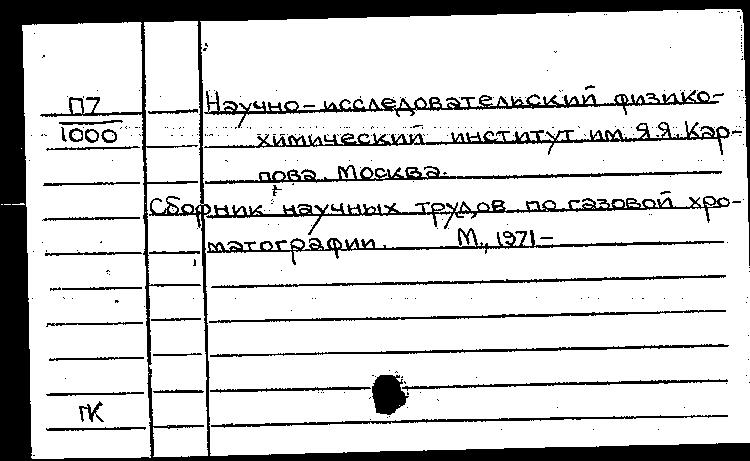 П7
1000
Научно-исследовательский физико-
химический институт им. Я.Я. Кар-
пова. Москва.
Сборник научных трудов по газовой хро-
матографии. М., 1971-
ПК